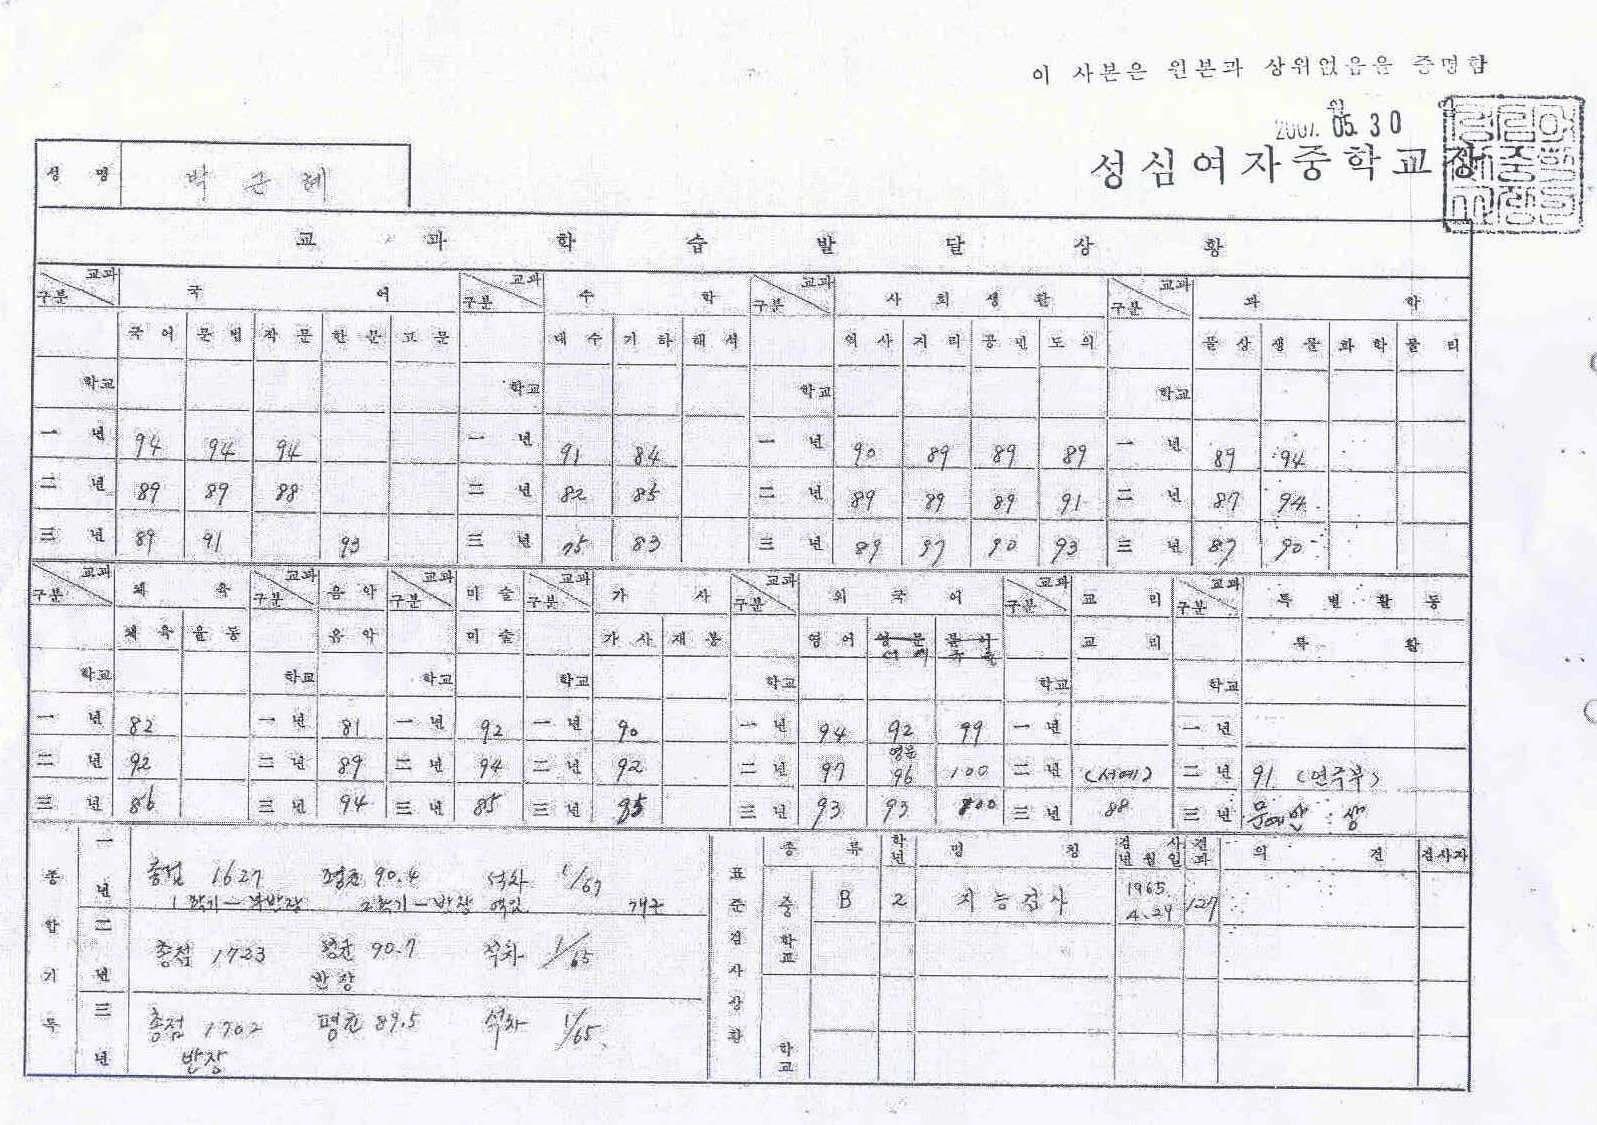 이 사본은 원본과 상위없음을 증명함
2007. 05. 30
성심여자중학교장
성 명 박 근 혜
교 과 학 습 발 달 상 황
교과 구분 국 어 교과 구분 수 학 교과 구분 사 회 생 활 교과 구분 과 학
국 어 문 법 작 문 한 문 고 문 대 수 기 하 해 석 역 사 지 리 공 민 도 의 물 상 생 물 화 학 물 리
학교 학교 학교 학교
一 년 94 94 94 一 년 91 84 一 년 90 89 89 89 一 년 89 94
二 년 89 89 88 二 년 82 85 二 년 89 89 89 91 二 년 87 94
三 년 89 91 93 三 년 75 83 三 년 89 97 90 93 三 년 87 90
교과 구분 체 육 교과 구분 음 악 교과 구분 미 술 교과 구분 가 사 교과 구분 외 국 어 교과 구분 교 리 교과 구분 특 별 활 동
체 육 율 동 음 악 미 술 가 사 재 봉 영 어 교 리 특 활
학교 학교 학교 학교 학교 학교 학교
一 년 82 一 년 81 一 년 92 一 년 90 一 년 94 92 99 一 년 一 년
二 년 92 二 년 89 二 년 94 二 년 92 二 년 97 영문 96 100 二 년 (서예) 二 년 91 (연주부)
三 년 86 三 년 94 三 년 85 三 년 三 년 93 93 100 三 년 88 三 년 문예반
종 합 기 록
一 년 총점 1627 평균 90.4 석차 1/67
1학기 - 부반장 2학기 - 반장 역임 개근
二 년 총점 1723 평균 90.7 석차 1/65
반장
三 년 총점 1702 평균 89.5 석차 1/65
반장
표 준 검 사 상 황
종 류 학년 명 칭 검 사 년 월 일 결과 의 견 검사자
중 학교 B 2 지능검사 1965. 4.29 127
학교